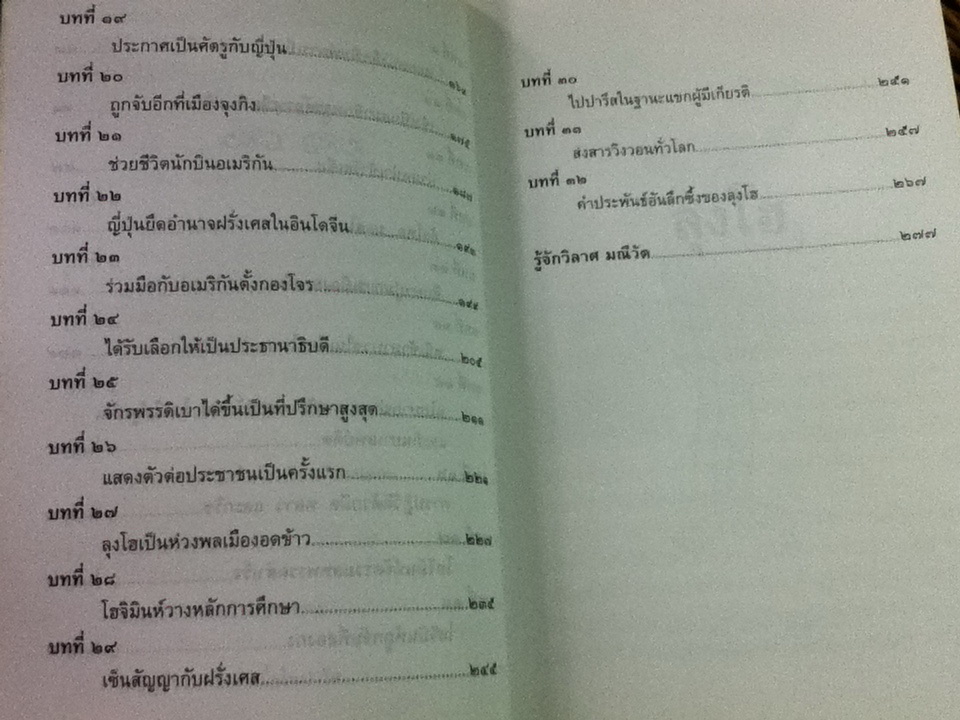 บทที่ ๑๙
ประกาศเป็นศัตรูกับญี่ปุ่น
บทที่ ๒๐
ถูกจับอีกที่เมืองจุงกิง ๑๗๕
บทที่ ๒๑
ช่วยชีวิตนักบินอเมริกัน
บทที่ ๒๒
ญี่ปุ่นยึดอำนาจฝรั่งเศสในอินโดจีน
บทที่ ๒๓
ร่วมมือกับอเมริกันตั้งกองโจร
บทที่ ๒๔
ได้รับเลือกให้เป็นประธานาธิบดี ๒๐๕
บทที่ ๒๕
จักรพรรดิเบาได๋ขึ้นเป็นที่ปรึกษาสูงสุด ๒๑๑
บทที่ ๒๖
แสดงตัวต่อประชาชนเป็นครั้งแรก ๒๒๑
บทที่ ๒๗
ลุงโฮเป็นห่วงพลเมืองอดข้าว ๒๒๗
บทที่ ๒๘
โฮจิมินห์วางหลักการศึกษา ๒๓๕
บทที่ ๒๙
เซ็นสัญญากับฝรั่งเศส ๒๔๕
บทที่ ๓๐
ไปปารีสในฐานะแขกผู้มีเกียรติ ๒๕๑
บทที่ ๓๑
ส่งสารวิงวอนทั่วโลก ๒๕๗
บทที่ ๓๒
คำประพันธ์อันลึกซึ้งของลุงโฮ ๒๖๗
รู้จักวิลาศ มณีวัต ๒๗๗